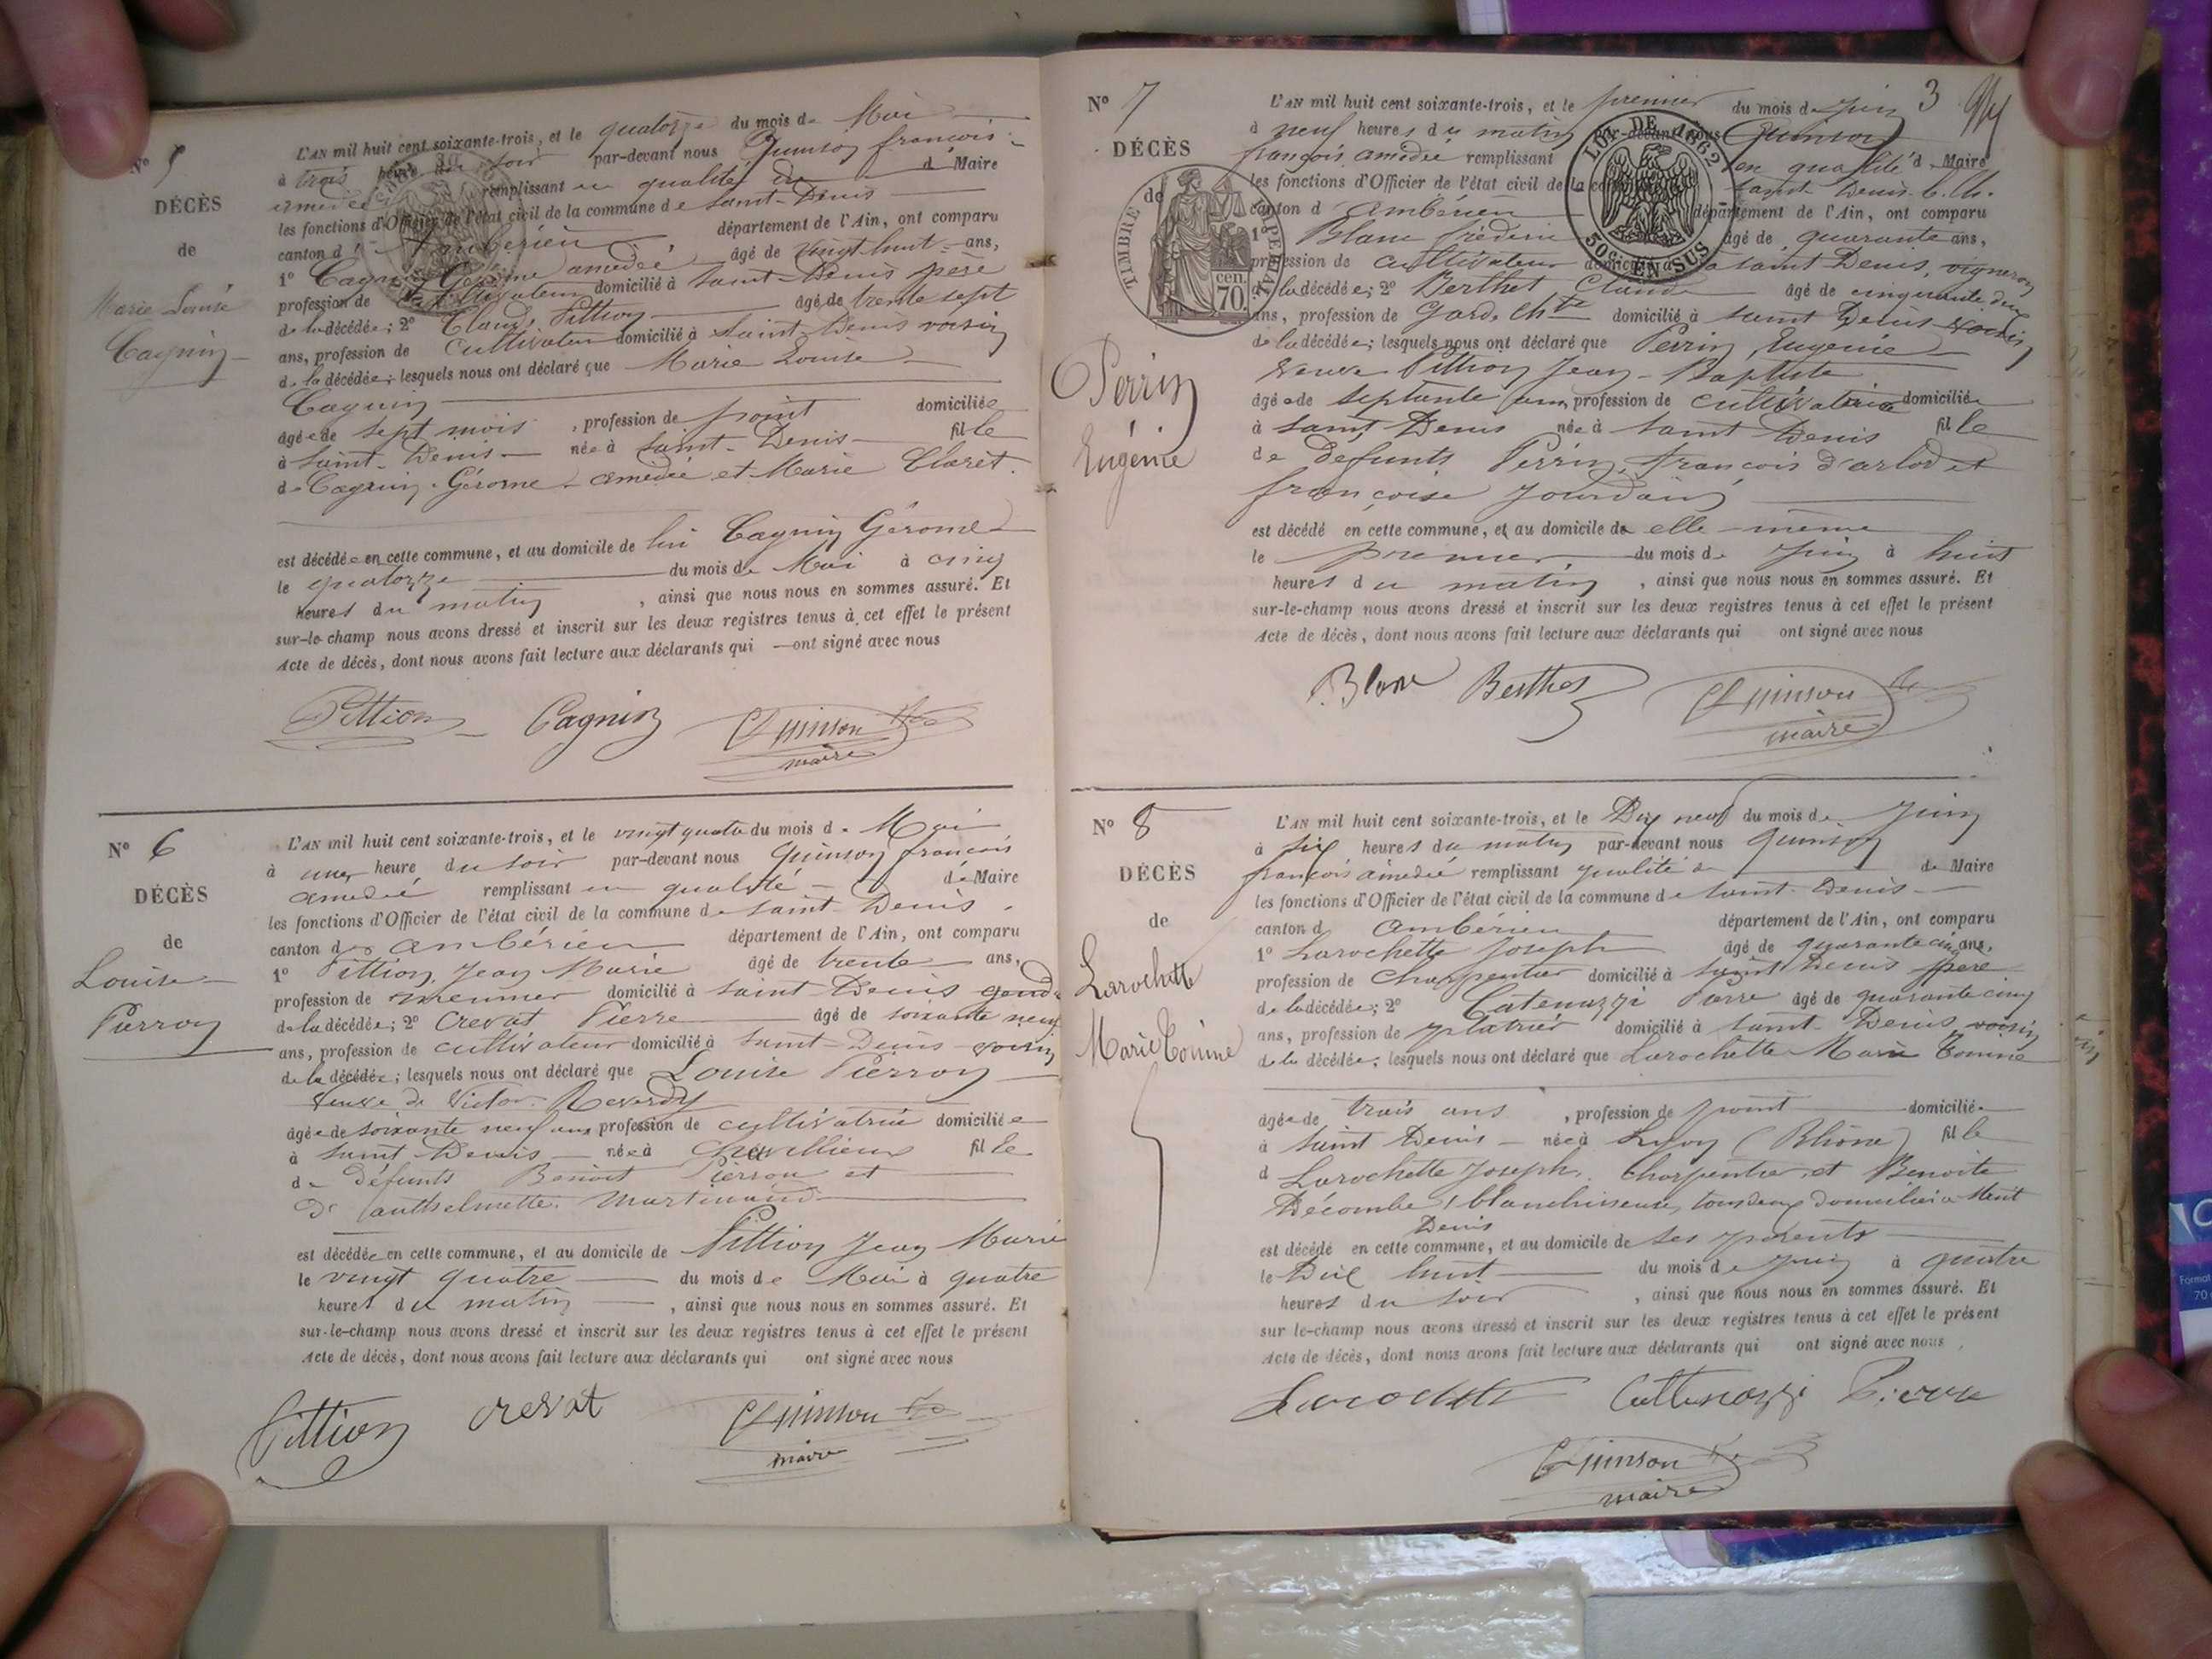 N° 5
DÉCÈS
de
Marie Louise
Cagnin
L'AN mil huit cent soixante-trois, et le quatorze du mois de Mai
à trois heures du soir par-devant nous Quinson françois
amédée remplissant en qualité de d Maire
les fonctions d'Officier de l'état civil de la commune de Saint-Denis
canton d'Ambérieu département de l'Ain, ont comparu
1° Cagnin Gérome amédée âgé de vingt huit ans,
profession de cultivateur domicilié à Saint-Denis père
de la décédée; 2° Claude Pittion âgé de trente sept
ans, profession de cultivateur domicilié à Saint-Denis voisin
de la décédée; lesquels nous ont déclaré que Marie Louise
Cagnin
âgée de sept mois, profession de point domiciliée
à Saint-Denis née à Saint-Denis fille
de Cagnin Gérome amédée et Marie Claret.
est décédée en cette commune, et au domicile de lui Cagnin Gérome
le quatorze du mois de Mai à cinq
heures du matin, ainsi que nous nous en sommes assuré. Et
sur-le-champ nous avons dressé et inscrit sur les deux registres tenus à cet effet le présent
Acte de décès, dont nous avons fait lecture aux déclarants qui ont signé avec nous
Pittion Cagnin Quinson
maire
N° 6
DÉCÈS
de
Louise
Pierron
L'AN mil huit cent soixante-trois, et le vingt quatre du mois de Mai
à une heure du soir par-devant nous Quinson françois
amédée remplissant en qualité de Maire
les fonctions d'Officier de l'état civil de la commune de Saint-Denis
canton d ambérieu département de l'Ain, ont comparu
1° Pittion Jean Marie âgé de trente ans,
profession de meunier domicilié à Saint Denis gendre
de la décédée; 2° Crevat Pierre âgé de soixante neuf
ans, profession de cultivateur domicilié à Saint-Denis voisin
de la décédée; lesquels nous ont déclaré que Louise Pierron
veuve de Victor Reverdy
âgée de soixante neuf ans profession de cultivatrice domiciliée
à Saint-Denis née à fille
de défunts Benoit Pierron et
D' anthelmette Martinand
est décédée en cette commune, et au domicile de Pittion Jean Marie
le vingt quatre du mois de Mai à quatre
heures du matin, ainsi que nous nous en sommes assuré. Et
sur-le-champ nous avons dressé et inscrit sur les deux registres tenus à cet effet le présent
Acte de décès, dont nous avons fait lecture aux déclarants qui ont signé avec nous
Pittion Crevat Quinson
maire
3
N° 7
DÉCÈS
de
TIMBRE IMPÉRIAL
70 cen.
LOI DE 1862
50c. EN SUS
Perrin
Eugénie
L'AN mil huit cent soixante-trois, et le premier du mois de Juin
à neuf heures du matin Par-devant nous Quinson
françois amédée remplissant en qualité d Maire
les fonctions d'Officier de l'état civil de la commune Saint Denis
canton d Ambérieu département de l'Ain, ont comparu
1° Blanc fréderic âgé de quarante ans,
profession de cultivateur domicilié à Saint Denis, vigneron
de la décédée; 2° Berthet Claude âgé de cinquante deux
ans, profession de Garde Chtre domicilié à Saint Denis voisin
de la décédée; lesquels nous ont déclaré que Perrin Eugénie
Veuve Pittion Jean-Baptiste
âgée de septante ans, profession de cultivatrice domiciliée
à Saint Denis née à Saint Denis fille
de Défunts Perrin, françois d'arlod et
françoise Jourdain
est décédé en cette commune, et au domicile de elle-même
le premier du mois de Juin à huit
heures du matin, ainsi que nous nous en sommes assuré. Et
sur-le-champ nous avons dressé et inscrit sur les deux registres tenus à cet effet le présent
Acte de décès, dont nous avons fait lecture aux déclarants qui ont signé avec nous
Blanc Berthet Quinson
maire
N° 8
DÉCÈS
de
Larochette
Marie Tonine
L'AN mil huit cent soixante-trois, et le Dix neuf du mois de Juin
à six heures du matin par-devant nous Quinson
françois amédée remplissant qualité de Maire
les fonctions d'Officier de l'état civil de la commune de Saint-Denis
canton d Ambérieu département de l'Ain, ont comparu
1° Larochette Joseph âgé de quarante cinq ans,
profession de Charpentier domicilié à Saint Denis père
de la décédée; 2° Catenazzi Pierre âgé de quarante cinq
ans, profession de platrier domicilié à Saint-Denis voisin
de la décédée; lesquels nous ont déclaré que Larochette Marie Tonine
âgée de trois ans, profession de point domiciliée
à Saint Denis née à Lyon (Rhône) fille
d Larochette Joseph, Charpentier et Benoite
Décombe blanchisseuse, tous deux domiciliés à Saint
Denis
est décédé en cette commune, et au domicile de ses parents
le Dix huit du mois de Juin à quatre
heures du soir, ainsi que nous nous en sommes assuré. Et
sur le-champ nous avons dressé et inscrit sur les deux registres tenus à cet effet le présent
Acte de décès, dont nous avons fait lecture aux déclarants qui ont signé avec nous
Larochette Cattenazzi Pierre
Quinson
maire
Format